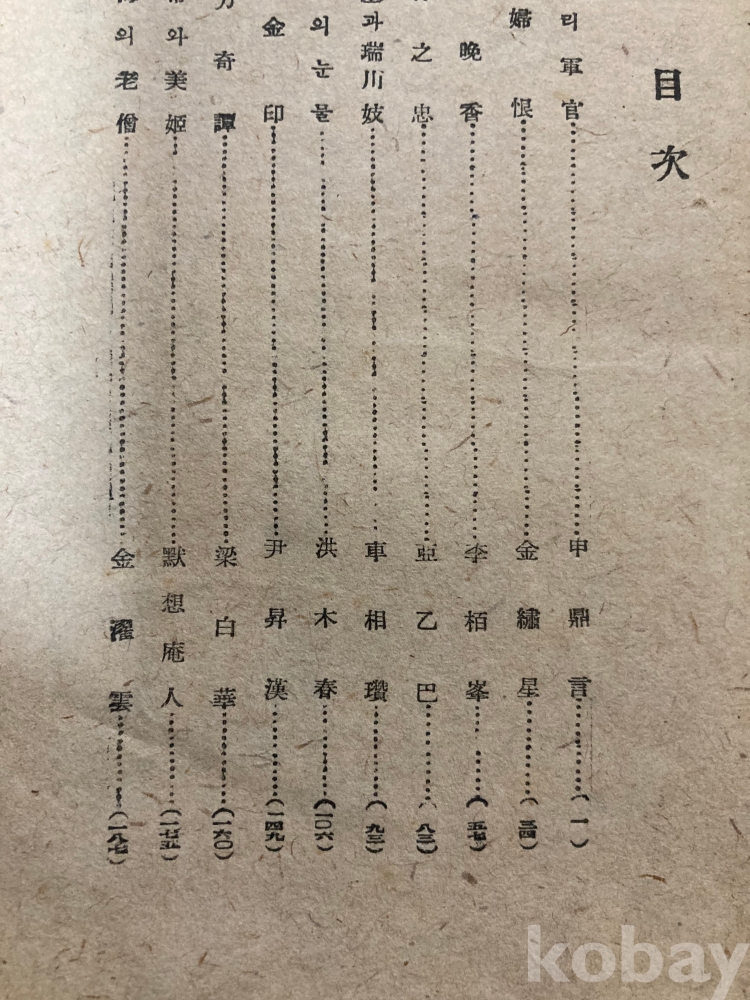 目次
리軍官 申鼎言 (一)
婦恨 金繡星 (三四)
晩香 李栢峯 (五七)
之忠 亞乙巴 (八三)
과瑞川妓 車相瓚 (九三)
의눈물 洪木春 (一〇六)
金印 尹昇漢 (一四九)
奇譚 梁白華 (一六〇)
와美姬 默想庵人 (一七五)
의老僧 金濯雲 (一八七)
kobay